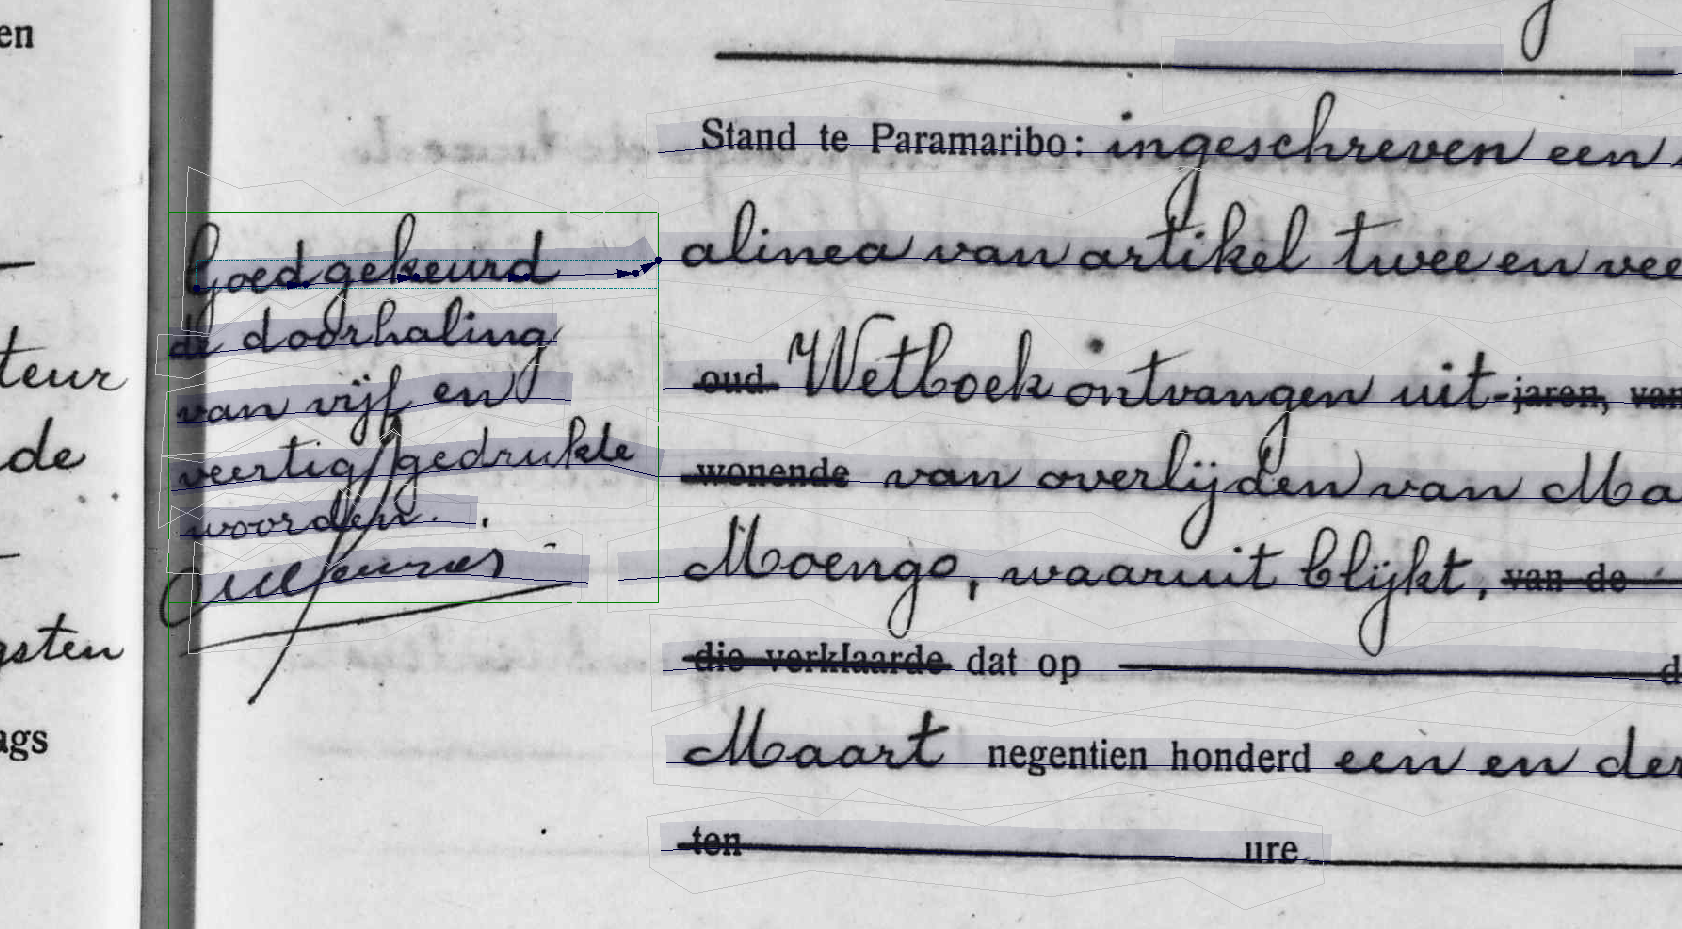 en
teur
de
gsten
ags
Goedgekeurd
de doorhaling
van vijf en
veertig gedrukte
woorden.
Stand te Paramaribo: ingeschreven een
alinea van artikel twee en vee
oud Wetboek ontvangen uit- jaren, van
wonende van overlijden van Ma
Moengo, waaruit blijkt, van de
die verklaarde dat op d
Maart negentien honderd een en der
ten ure